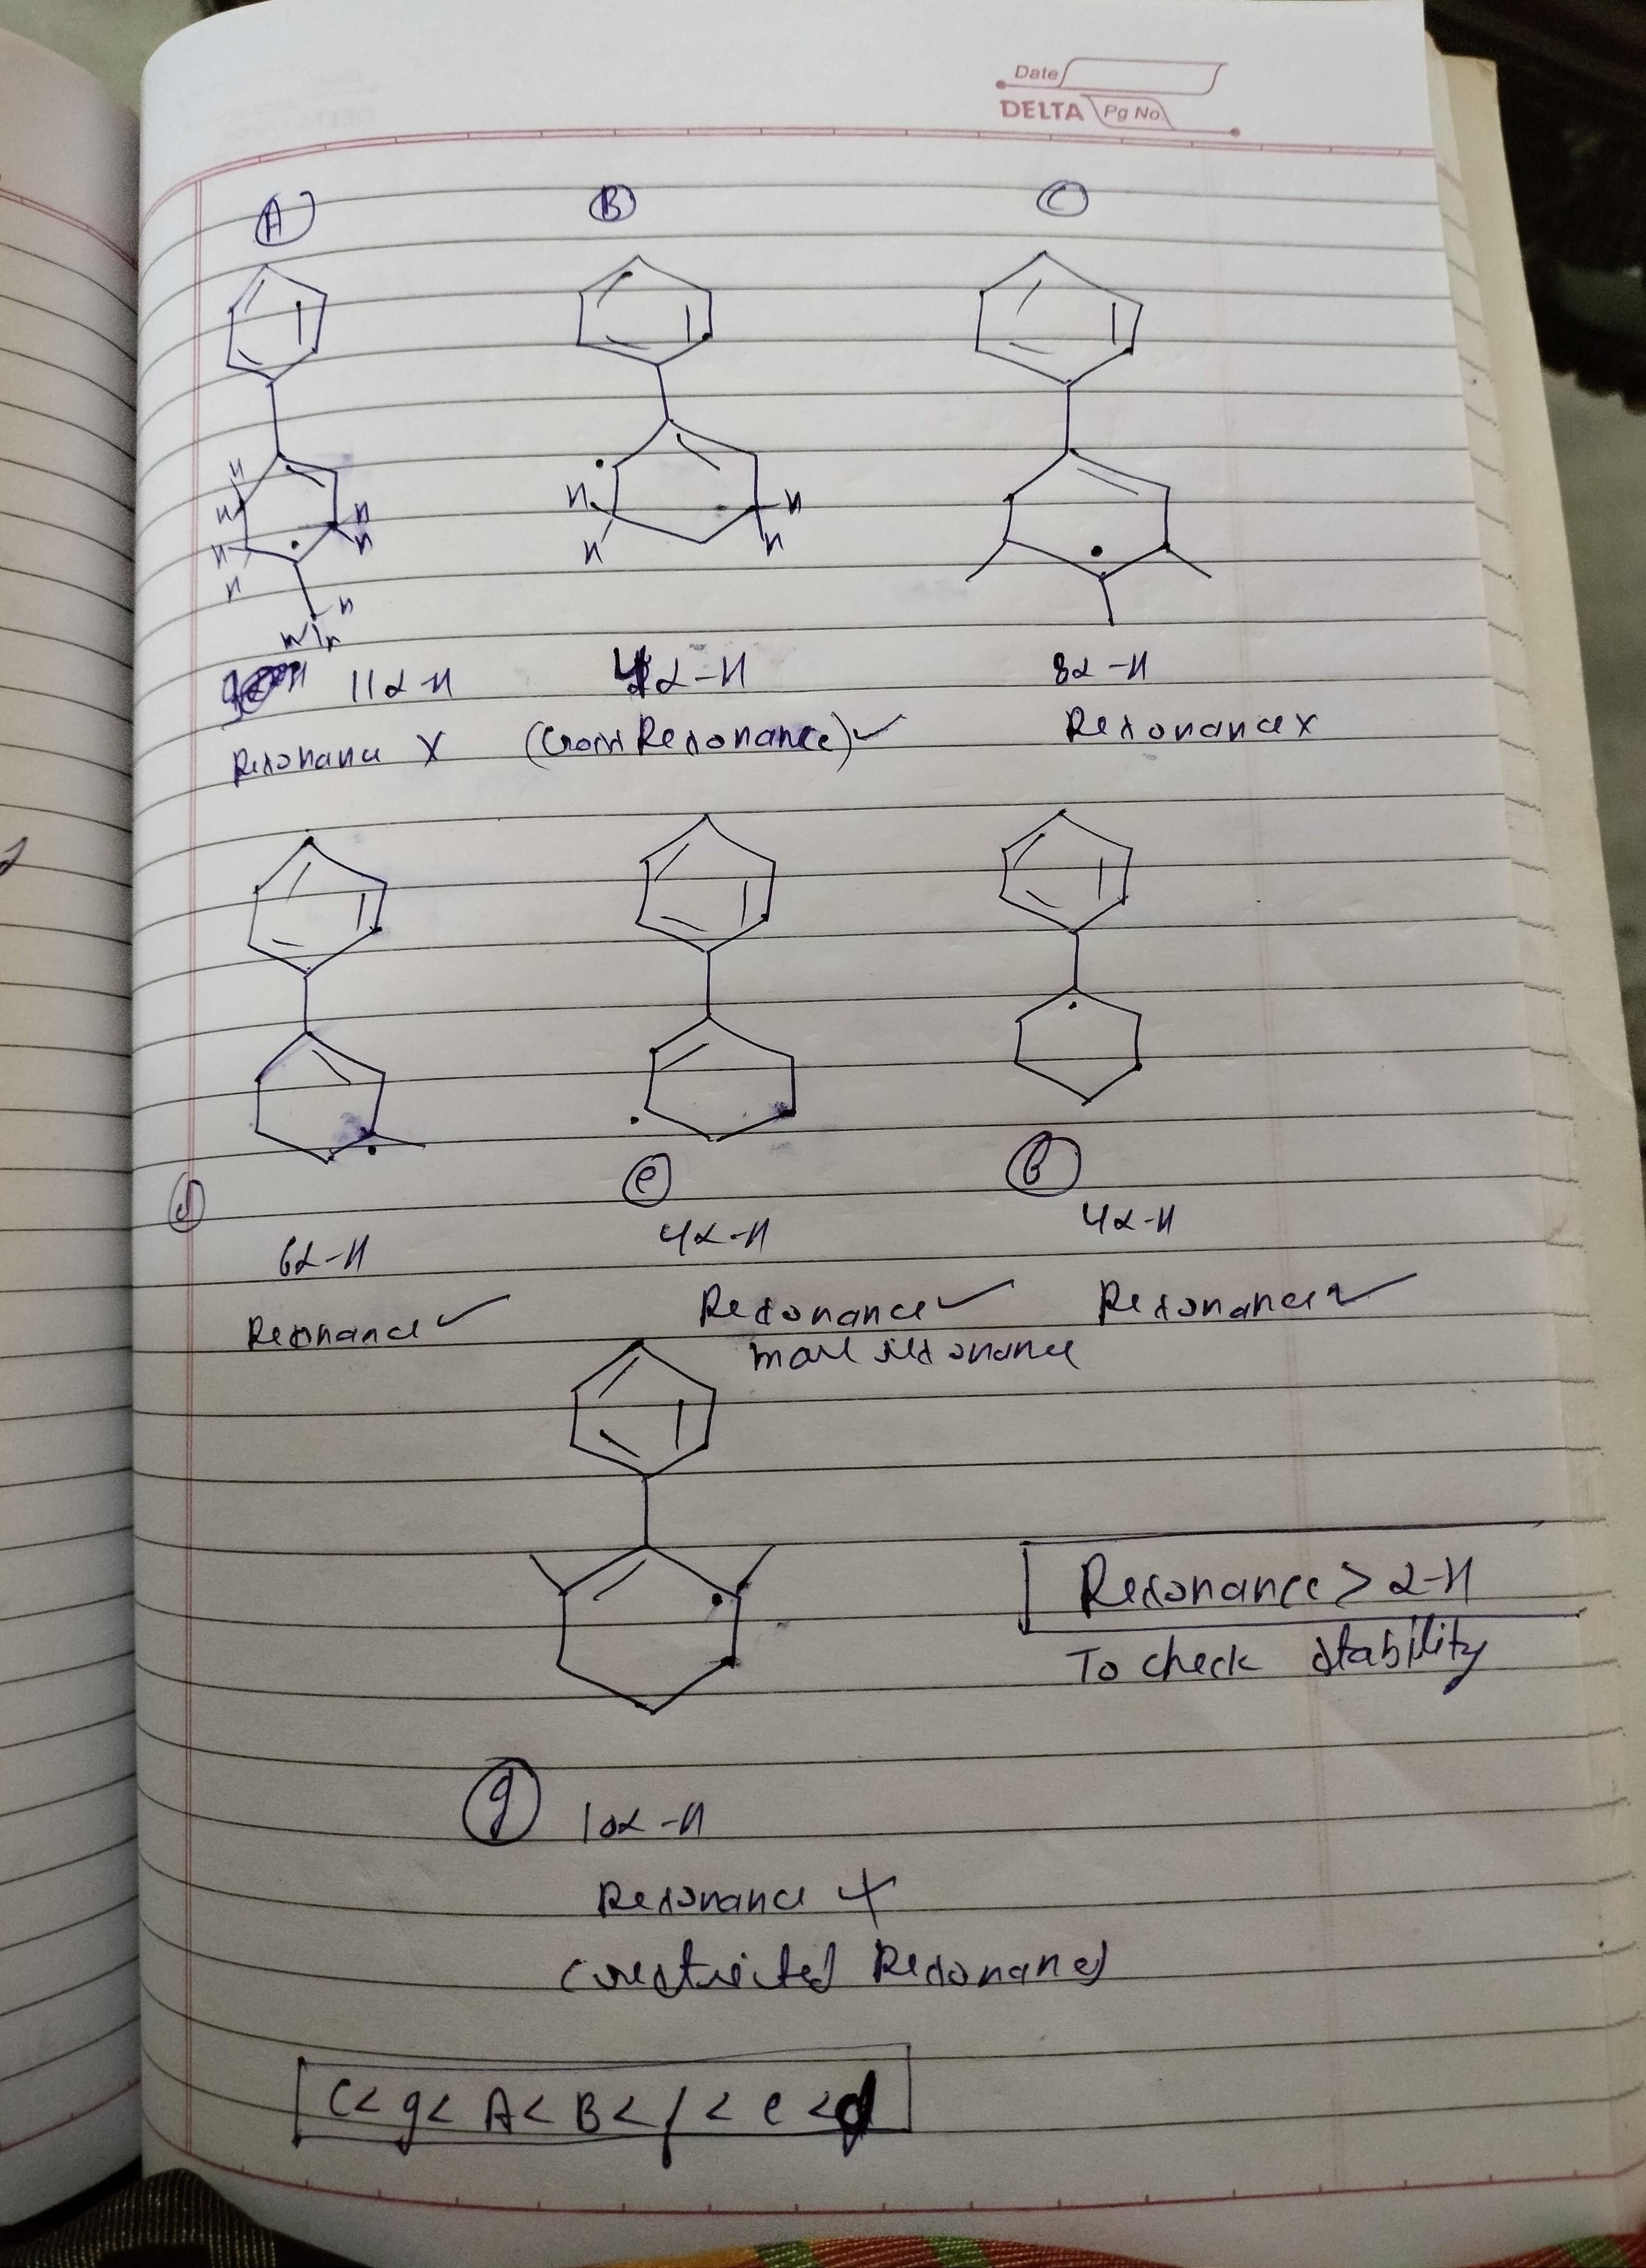 Date
DELTA Pg No.
A B C
H
H H H
H H H
H H H
H
11α-H 4α-H 8α-H
Resonance X (Cross Resonance) ✓ Resonance x
d e f
6α-H 4α-H 4α-H
Resonance ✓ Resonance ✓ Resonance ✓
more resonance
Resonance > α-H
To check stability
g 10α-H
Resonance X
(restricted Resonance)
C < g < A < B < f < e < d